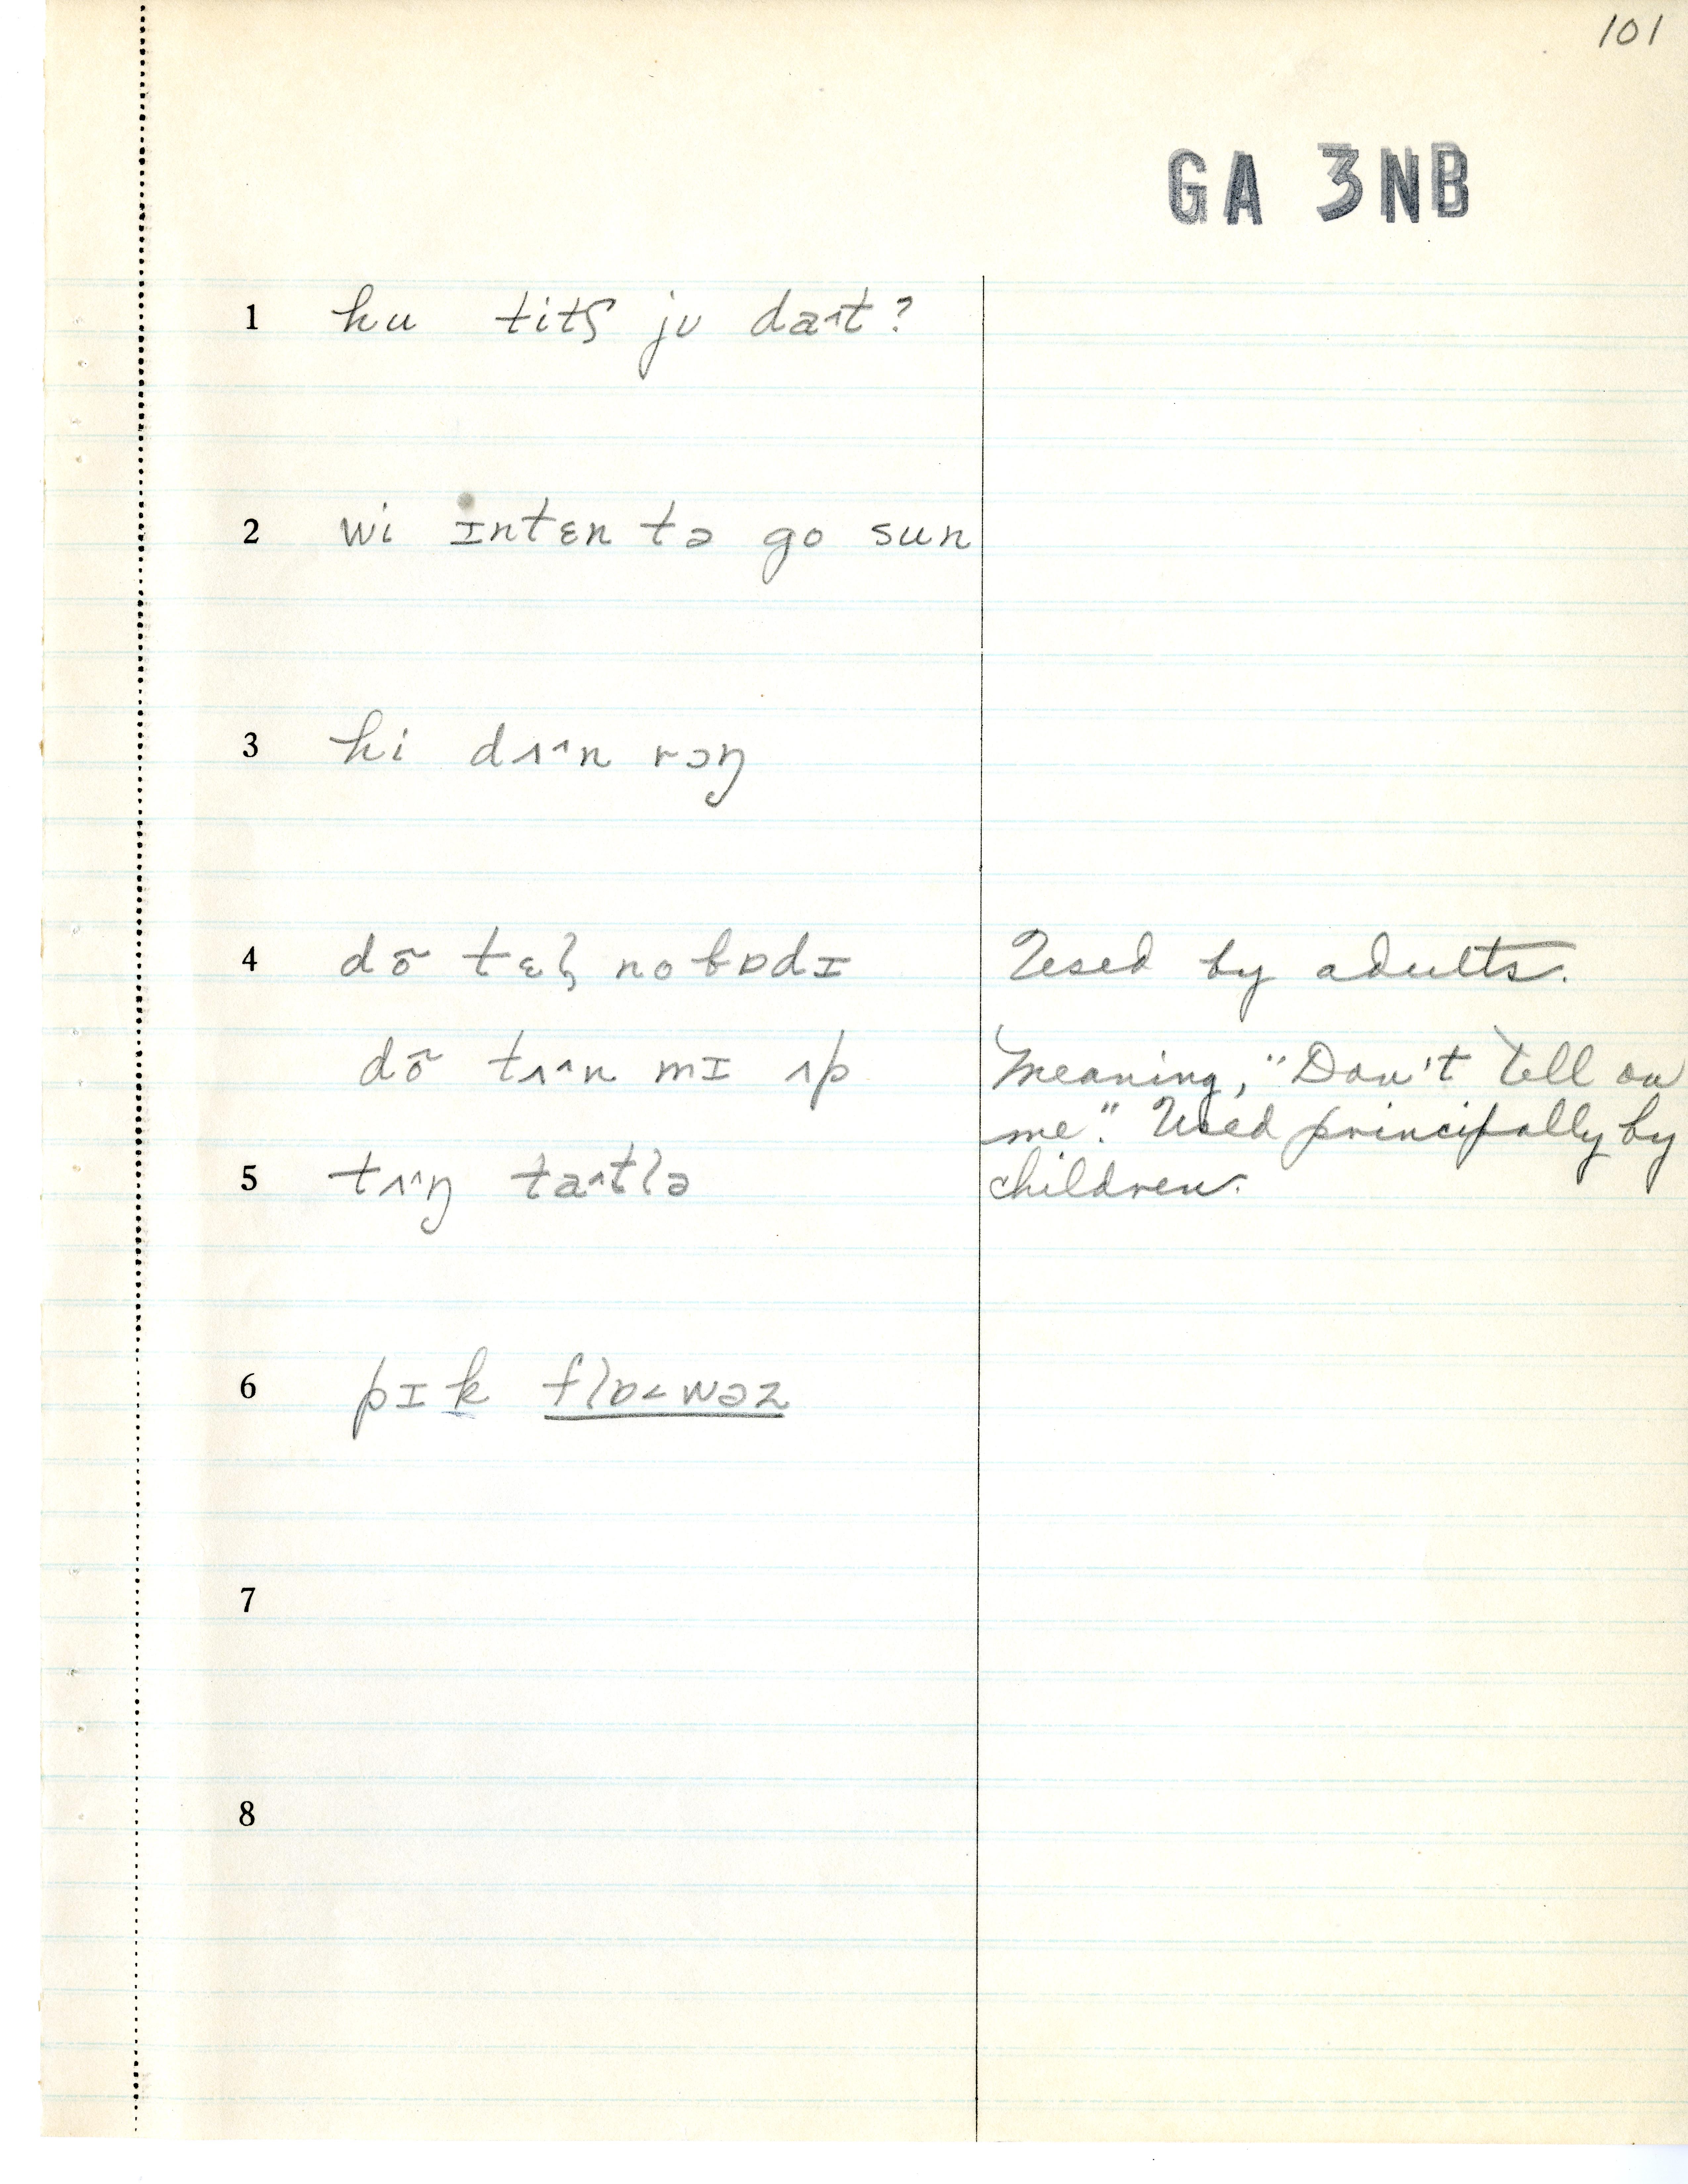 101
GA 3NB
1 hu titʃ jʊ daɪt?
2 wi ɪntɛn tə go sun
3 hi dʌˆn rɔŋ
4 dõ tɛl̥ nobɒdɪ Used by adults.
dõ tʌˆn mɪ ʌp Meaning, "Don't tell on
me". Used principally by
5 tʌˆŋ taˆtlə children.
6 pɪk flɒ˂wəz
7
8